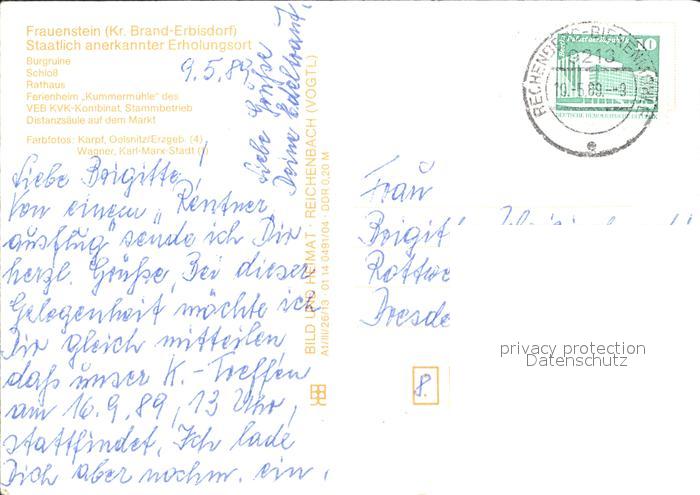 Frauenstein (Kr. Brand-Erbisdorf)
Staatlich anerkannter Erholungsort
Burgruine
Schloß
Rathaus
Ferienheim „Kummermühle" des
VEB KVK-Kombinat, Stammbetrieb
Distanzsäule auf dem Markt
Farbfotos: Karpf, Oelsnitz/Erzgeb. (4)
Wagner, Karl-Marx-Stadt
9.5.89
Liebe Brigitte!
Von einem „Rentner
ausflug" sende ich Dir
herzl. Grüße. Bei dieser
Gelegenheit möchte ich
Dir gleich mitteilen
daß unser K.-Treffen
am 16.9.89, 13 Uhr,
stattfindet. Ich lade
Dich aber nochm. ein.
Liebe Grüße
Deine Edeltraut.
BILD UND HEIMAT · REICHENBACH (VOGTL)
A1/III/26/13 01 14 0491/04 · DDR 0,20 M
10
DEUTSCHE DEMOKRATISCHE REPUBLIK
9213
10.-5.89.--9
Frau
Brigit
Rottwe
Dresde
8.
privacy protection
Datenschutz